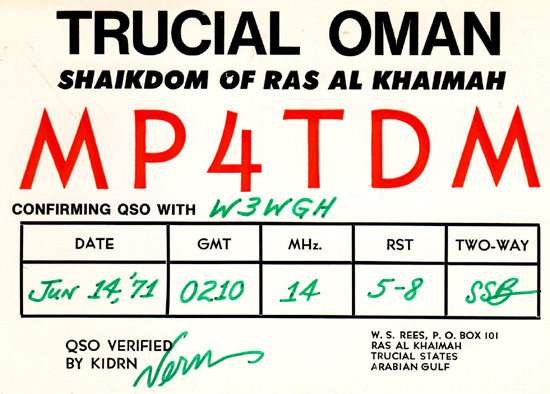 TRUCIAL OMAN
SHAIKDOM OF RAS AL KHAIMAH
MP4TDM
CONFIRMING QSO WITH W3WGH
DATE GMT MHz. RST TWO-WAY
Jun 14, '71 0210 14 5-8 SSB
QSO VERIFIED
BY KIDRN Vern
W. S. REES, P. O. BOX 101
RAS AL KHAIMAH
TRUCIAL STATES
ARABIAN GULF